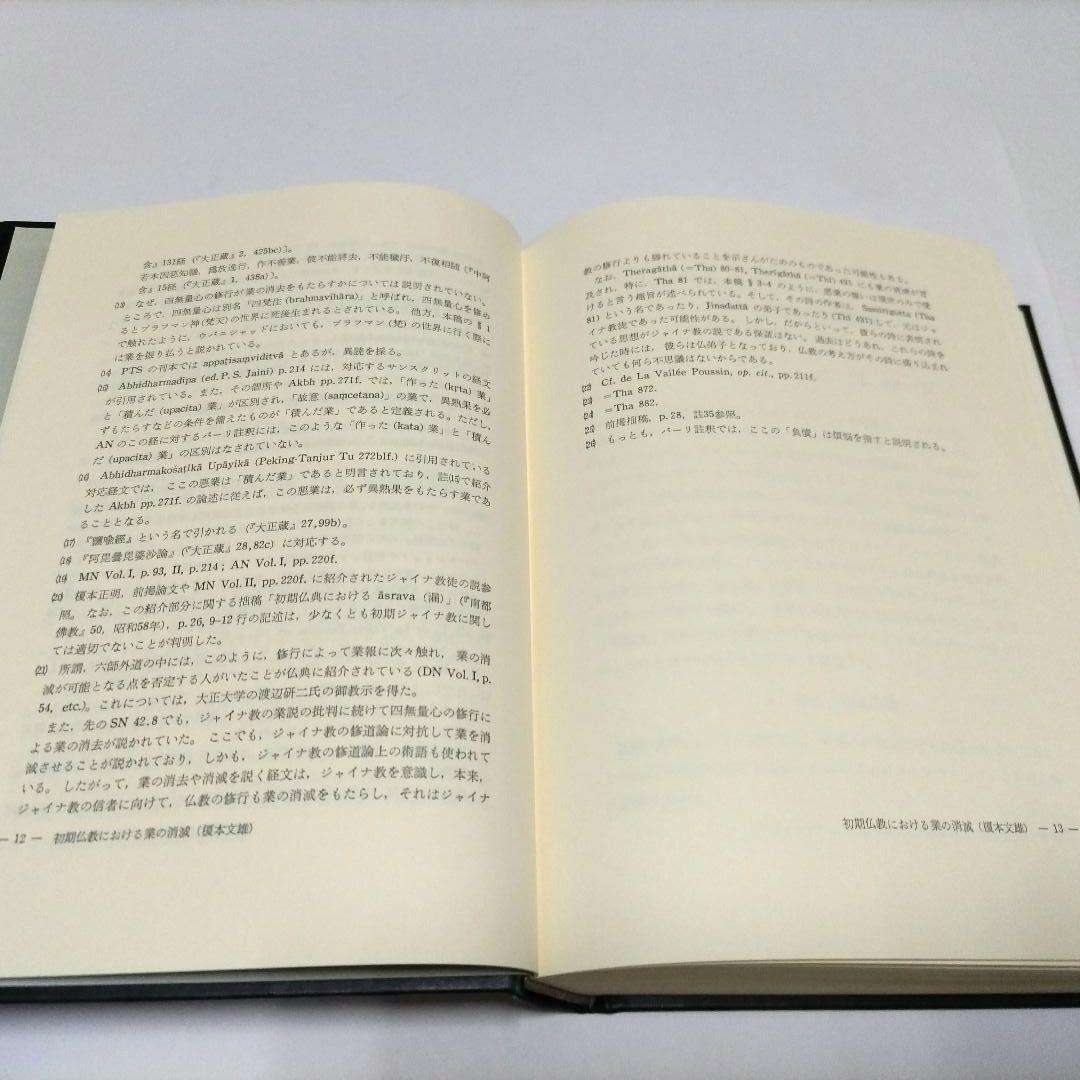 含』131経（『大正蔵』2, 425bc）〕。
若本因惡知識, 爲放逸行, 作不善業, 彼不能將去, 不能穢汙, 不復相隨〔『中阿
含』15経（『大正蔵』1, 438a）〕。
⒀ なぜ, 四無量心の修行が業の消去をもたらすかについては説明されていない。
ところで, 四無量心は別名「四梵住 (brahmavihāra)」と呼ばれ, 四無量心を修め
るとブラフマン神(梵天)の世界に死後生まれるとされている。 他方, 本稿の § 1
で触れたように, ウパニシャッドにおいても, ブラフマン (梵) の世界に行く際に
は業を振り払うと説かれている。
⒁ PTS の刊本では appaṭisaṃviditvā とあるが, 異読を採る。
⒂ Abhidharmadīpa (ed. P. S. Jaini) p. 214 には, 対応するサンスクリットの経文
が引用されている。また, その個所や Akbh pp. 271f. では,「作った (kṛta) 業」
と「積んだ (upacita) 業」が区別され,「故意 (saṃcetana)」の業で, 異熟果を必
ずもたらすなどの条件を備えたものが「積んだ業」であると定義される。ただし,
AN のこの経に対するパーリ註釈には, このような「作った (kata) 業」と「積ん
だ (upacita) 業」の区別はなされていない。
⒃ Abhidharmakośaṭīkā Upāyikā (Peking-Tanjur Tu 272b1f.) に引用されている
対応経文では, ここの悪業は「積んだ業」であると明言されており, 註⒂で紹介
した Akbh pp. 271f. の論述に従えば, この悪業は, 必ず異熟果をもたらす業であ
ることとなる。
⒄ 『鹽喩經』という名で引かれる (『大正蔵』27, 99b)。
⒅ 『阿毘曇毘婆沙論』(『大正蔵』28, 82c) に対応する。
⒆ MN Vol. I, p. 93, II, p. 214 ; AN Vol. I, pp. 220f.
⒇ 榎本正明, 前掲論文や MN Vol. II, pp. 220f. に紹介されたジャイナ教徒の説参
照。 なお, この紹介部分に関する拙稿「初期仏典における āsrava (漏)」(『南都
佛教』50, 昭和58年), p. 26, 9–12 行の記述は, 少なくとも初期ジャイナ教に関し
ては適切でないことが判明した。
(21) 所謂, 六師外道の中には, このように, 修行によって業報に次々触れ, 業の消
滅が可能となる点を否定する人がいたことが仏典に紹介されている (DN Vol. I, p.
54, etc.)。これについては, 大正大学の渡辺研二氏の御教示を得た。
また, 先の SN 42.8 でも, ジャイナ教の業説の批判に続けて四無量心の修行に
よる業の消去が説かれていた。 ここでも, ジャイナ教の修道論に対抗して業を消
滅させることが説かれており, しかも, ジャイナ教の修道論上の術語も使われて
いる。 したがって, 業の消去や消滅を説く経文は, ジャイナ教を意識し, 本来,
ジャイナ教の信者に向けて, 仏教の修行も業の消滅をもたらし, それはジャイナ
— 12 — 初期仏教における業の消滅 (榎本文雄)
教の修行よりも勝れていることを示さんがためのものであった可能性もある。
なお, Theragāthā (=Tha) 80–81, Therīgāthā (=Thī) 431 にも業の消滅が言
及され, 特に, Tha 81 では, 本稿 § 3–4 のように, 悪業の報いは現世のみで受
けると言う趣旨が述べられている。そして, その詩の作者は, Samitigutta (Tha
81) という名であったり, Jinadattā の弟子であったり (Thī 431) して, 元はジャ
イナ教徒であった可能性がある。 しかし, だからといって, 彼らの詩に表明され
ている思想がジャイナ教の説である保証はない。 過去はどうあれ, これらの詩を
吟じた時には, 彼らは仏弟子となっており, 仏教の考え方がその詩に盛り込まれ
ていても何ら不思議はないからである。
(22) Cf. de La Vallée Poussin, op. cit., pp. 211f.
(23) =Tha 872.
(24) =Tha 882.
(25) 前掲拙稿, p. 28, 註35参照。
(26) もっとも, パーリ註釈では, ここの「負債」は煩悩を指すと説明される。
初期仏教における業の消滅 (榎本文雄) — 13 —